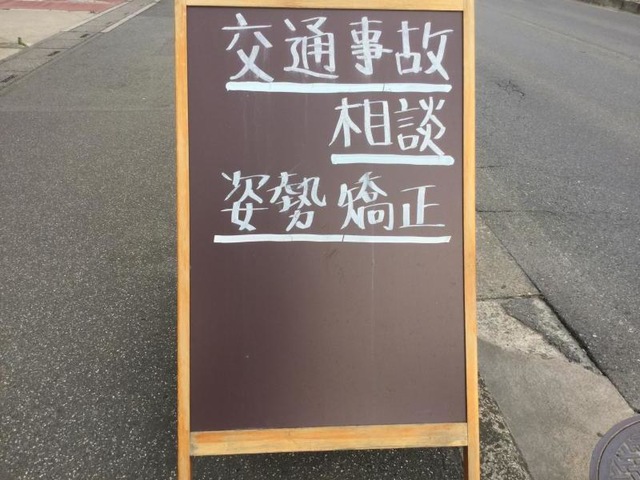 交通事故
相談
姿勢矯正